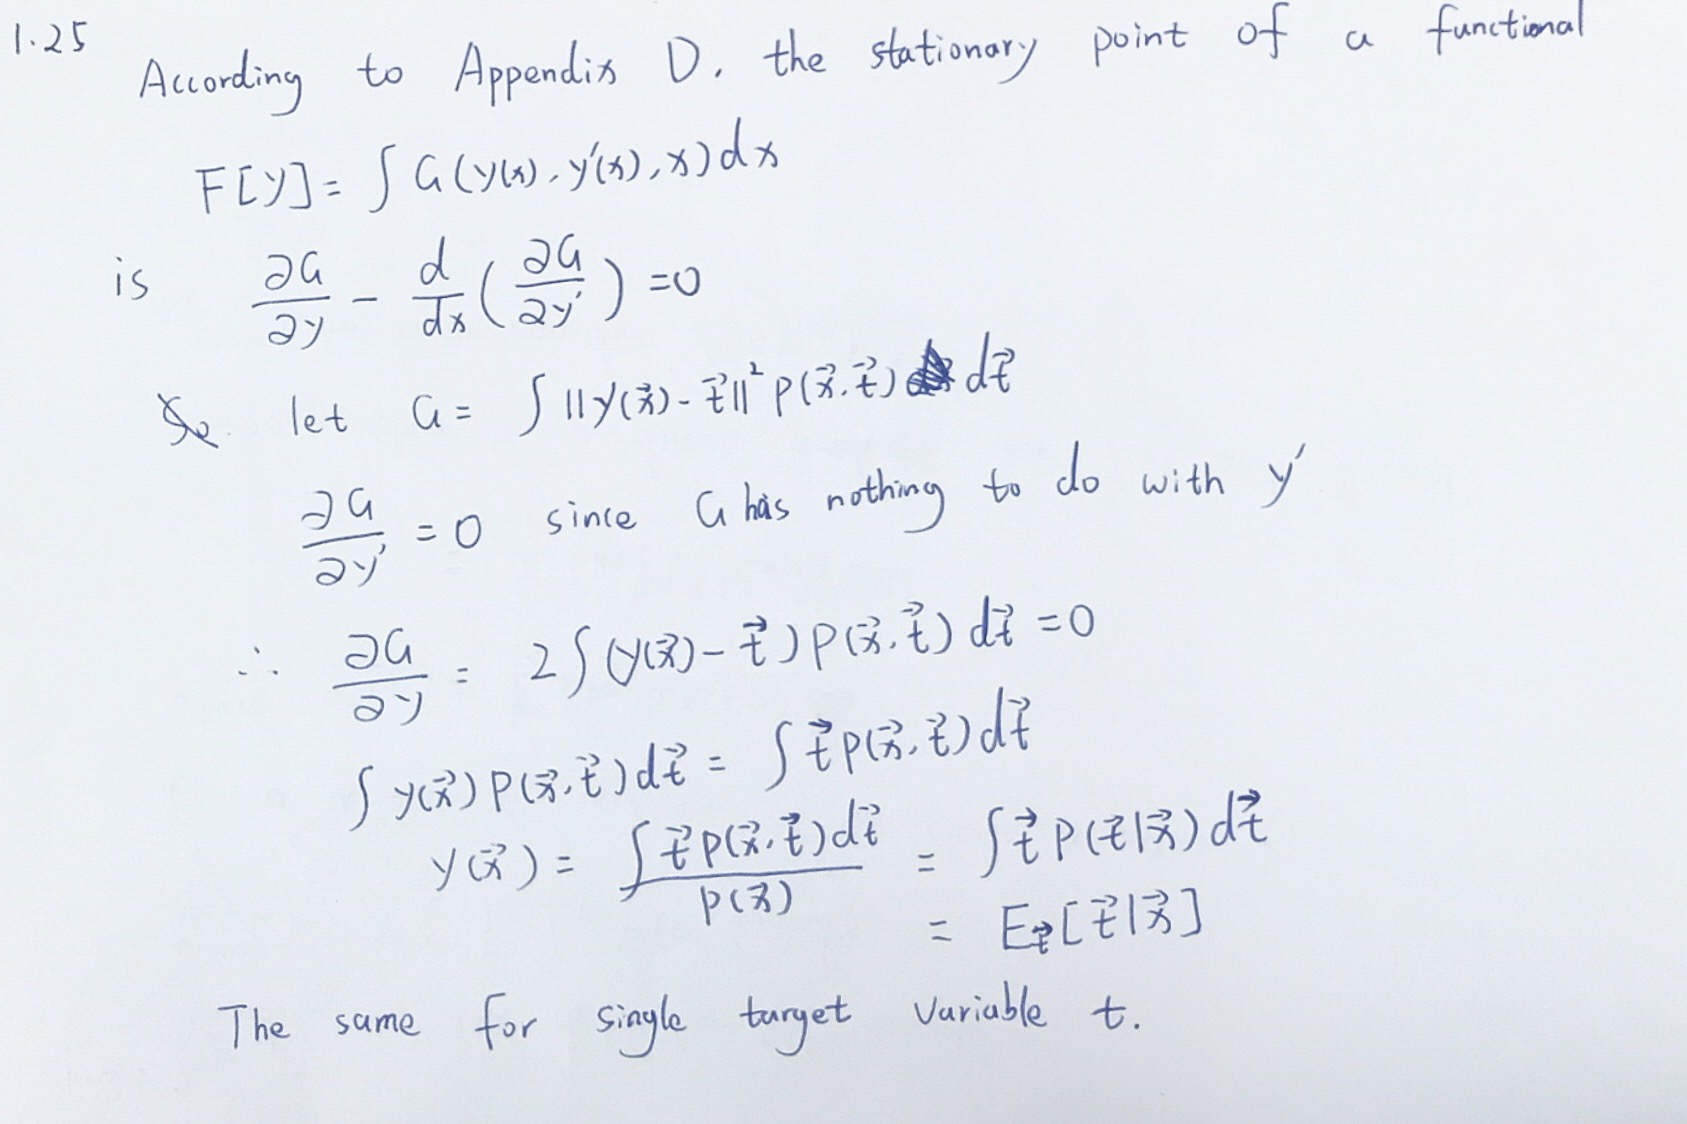 1.25
According to Appendix D, the stationary point of a functional
F[y] = ∫ G(y(x), y'(x), x) dx
is ∂G/∂y − d/dx (∂G/∂y') = 0
let G = ∫ ||y(x⃗) − t⃗||² p(x⃗, t⃗) dt⃗
∂G/∂y' = 0 since G has nothing to do with y'
∴ ∂G/∂y = 2∫ (y(x⃗) − t⃗) p(x⃗, t⃗) dt⃗ = 0
∫ y(x⃗) p(x⃗, t⃗) dt⃗ = ∫ t⃗ p(x⃗, t⃗) dt⃗
y(x⃗) = ∫ t⃗ p(x⃗, t⃗) dt⃗ / p(x⃗) = ∫ t⃗ p(t⃗|x⃗) dt⃗
= E_t⃗ [t⃗|x⃗]
The same for single target variable t.